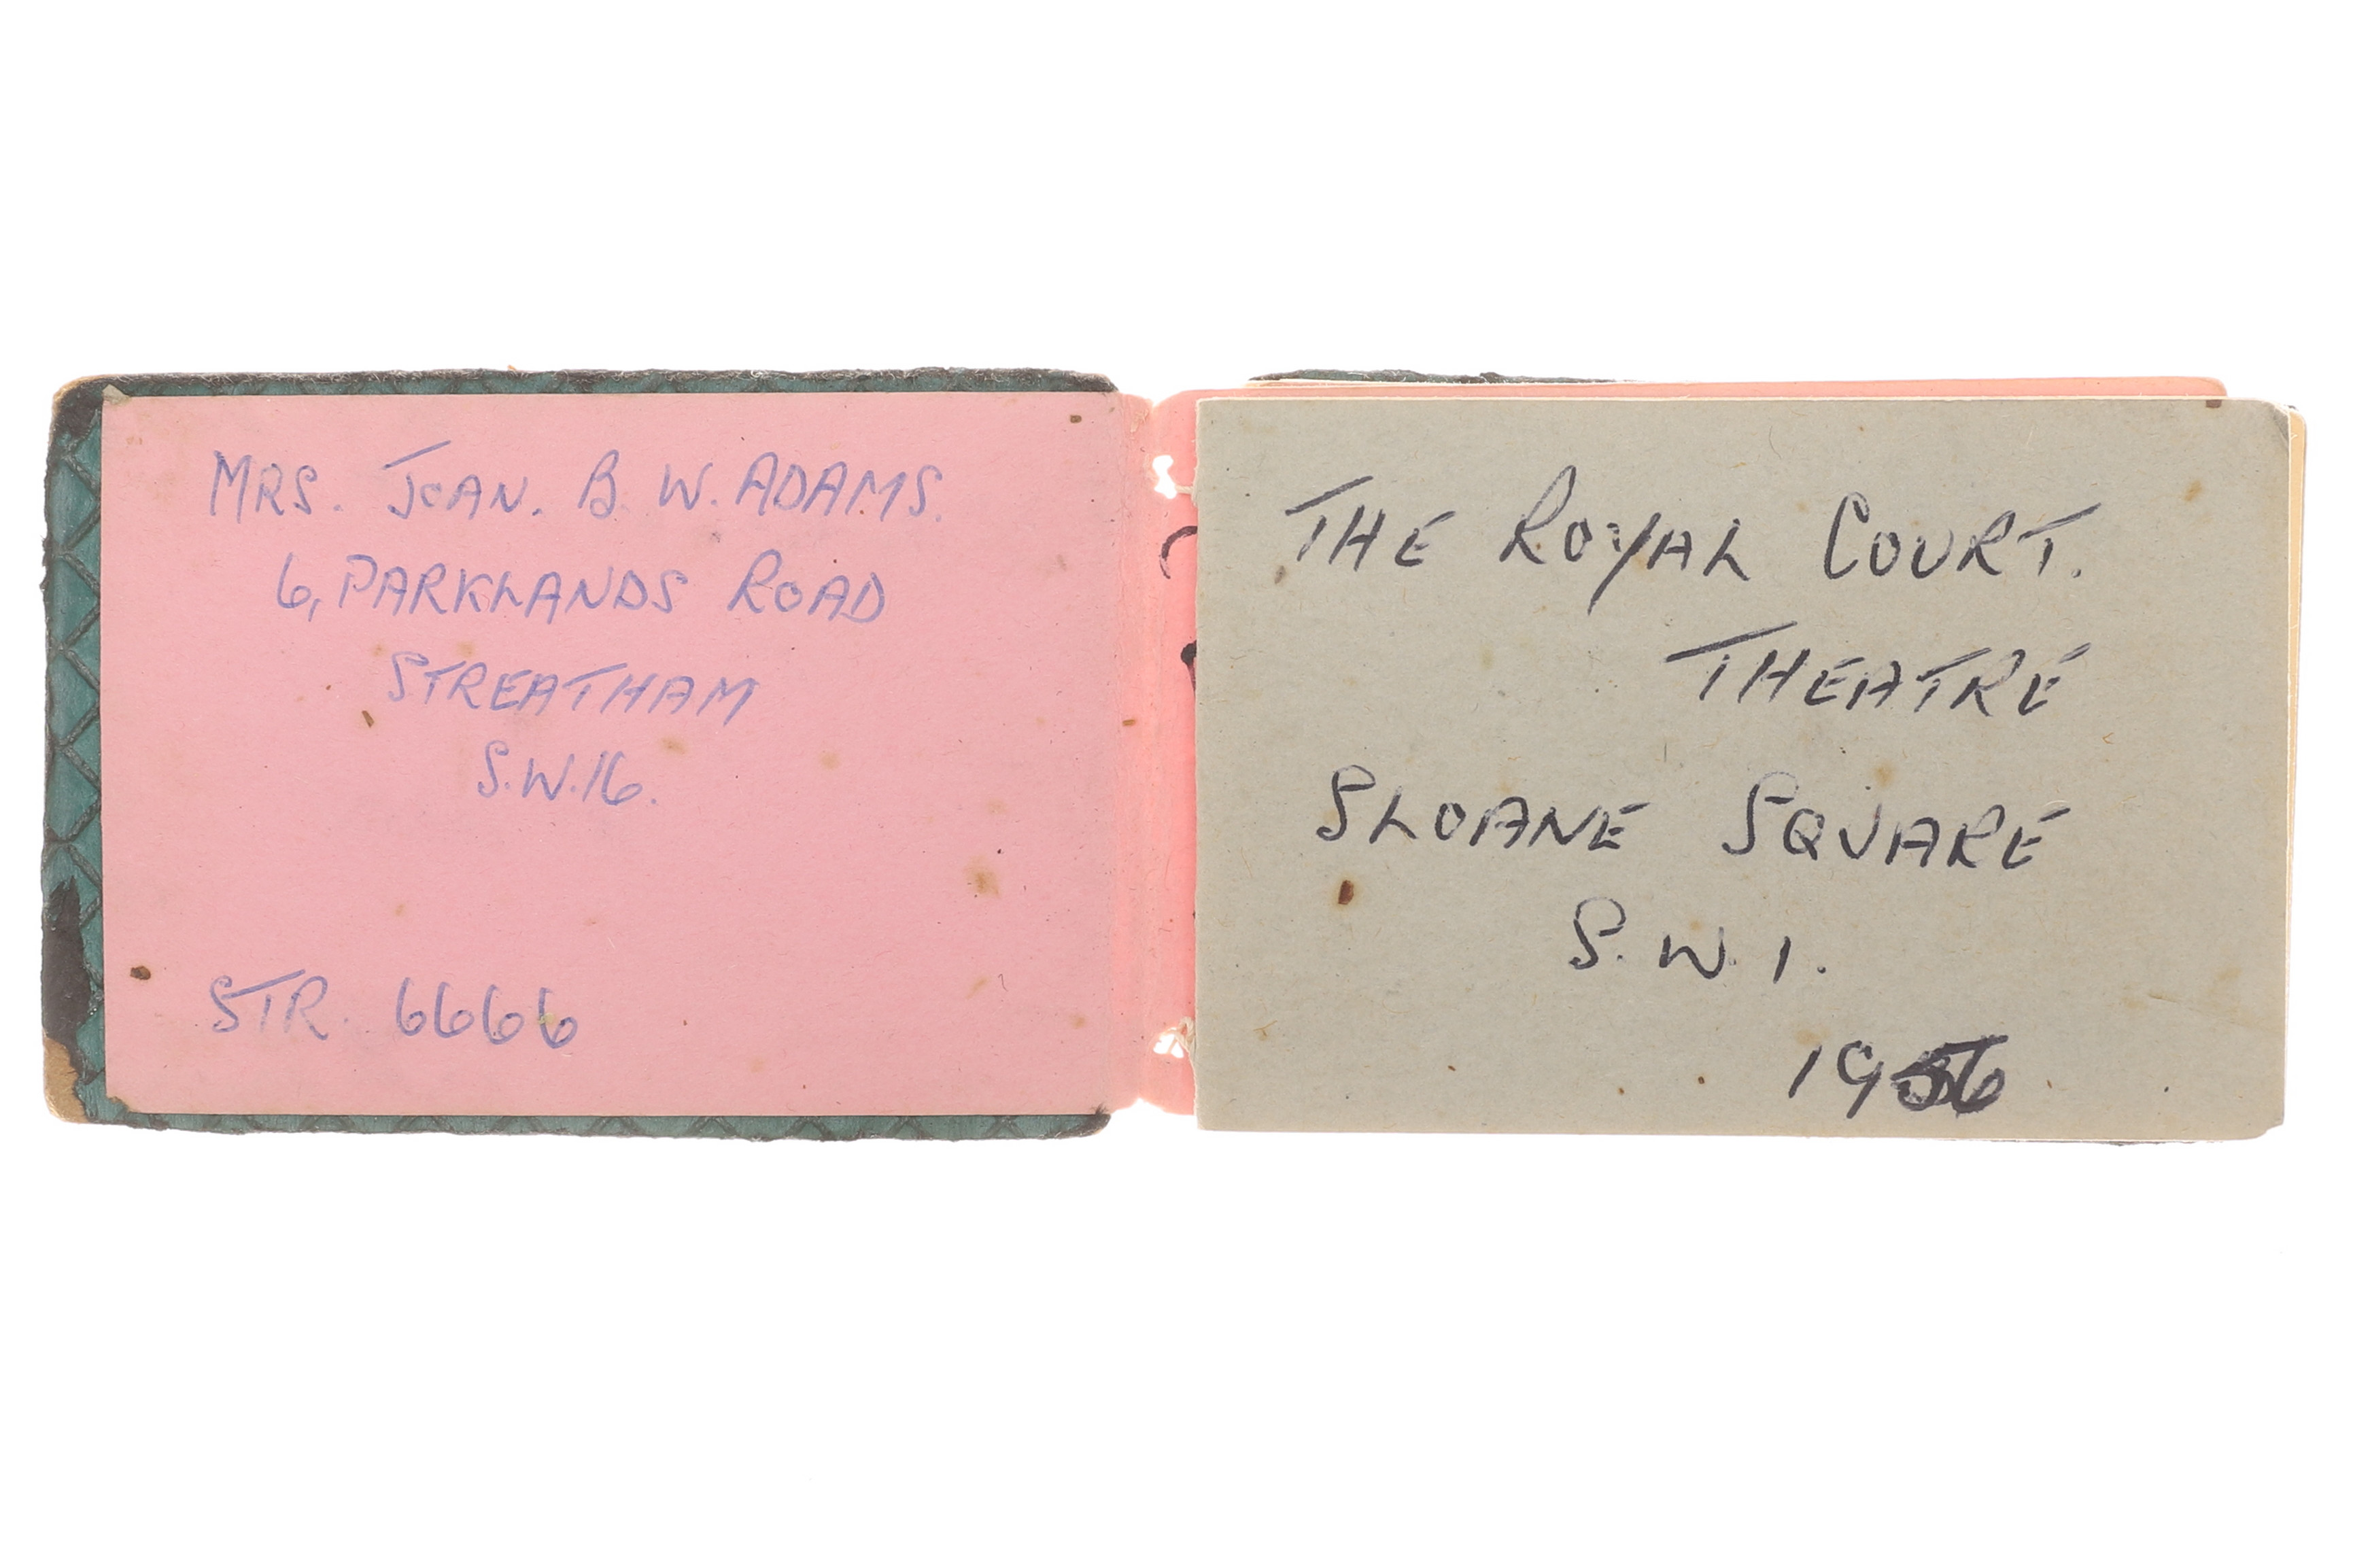 MRS. JOAN. B. W. ADAMS.
6, PARKLANDS ROAD
STREATHAM
S.W.16.
STR. 6666
THE ROYAL COURT.
THEATRE
SLOANE SQUARE
S.W.1.
1956